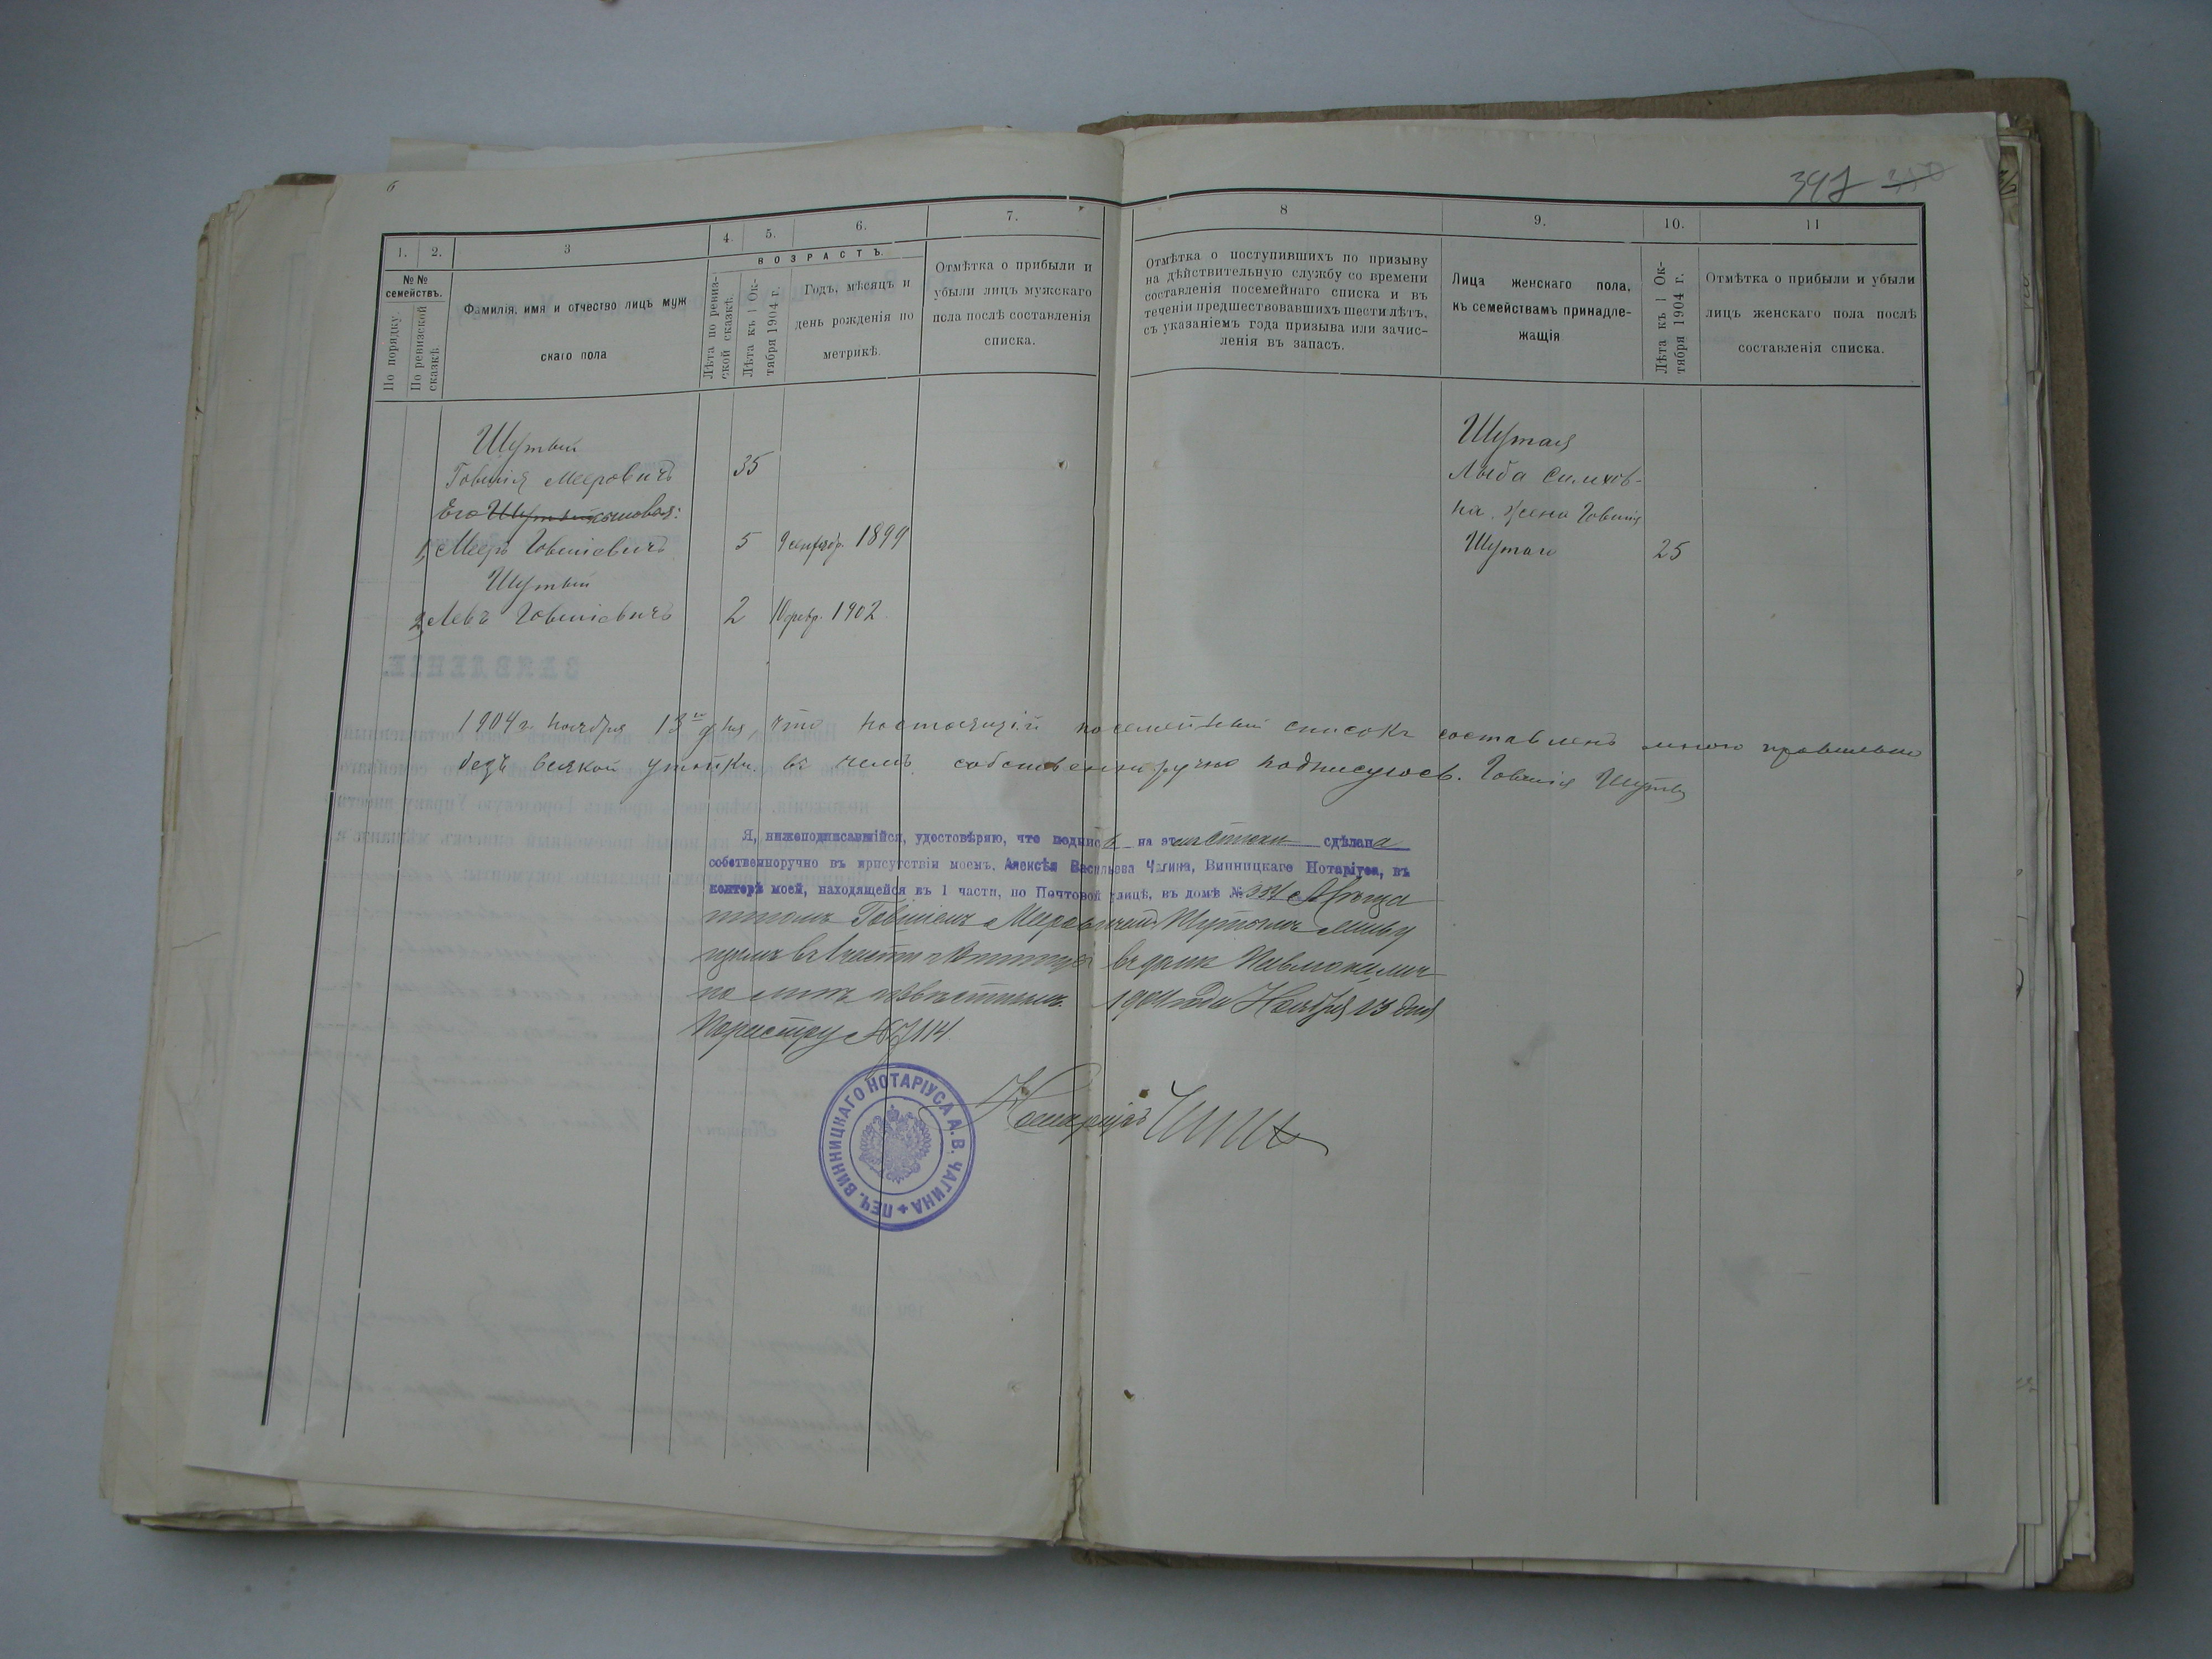 6
397 350
1. 2. 3 4. 5. 6. 7. 8 9. 10. 11
№№ семействъ.
По порядку.
По ревизской сказкѣ.
Фамилія, имя и отчество лицъ муж
скаго пола
ВОЗРАСТЪ.
Лѣта по ревиз-
ской сказкѣ.
Лѣта къ 1 Ок-
тября 1904 г.
Годъ, мѣсяцъ и
день рожденія по
метрикѣ.
Отмѣтка о прибыли и
убыли лицъ мужскаго
пола послѣ составленія
списка.
Отмѣтка о поступившихъ по призыву
на дѣйствительную службу со времени
составленія посемейнаго списка и въ
теченіи предшествовавшихъ шести лѣтъ,
съ указаніемъ года призыва или зачис-
ленія въ запасъ.
Лица женскаго пола,
къ семействамъ принадле-
жащія
Лѣта къ 1 Ок-
тября 1904 г.
Отмѣтка о прибыли и убыли
лицъ женскаго пола послѣ
составленія списка.
Шутый
Говшія Мееровичъ 35
Его сыновья:
1, Мееръ Говшіевичъ 5 9 сентябр. 1899
Шутый
2, Левъ Говшіевичъ 2 10 февр. 1902
Шутая
на, жена Говшія
Шутаи 25
1904 г. Ноября 13го дня, что настоящій посемейный списокъ составленъ мною правильно
безъ всякой утайки въ чемъ собственноручно подписуюсь. Говшія Шутый
Я, нижеподписавшійся, удостовѣряю, что подпись на этом списки сдѣлана
собственноручно въ присутствіи моемъ, Алексѣя Васильева Чагина, Винницкаго Нотаріуса, въ
конторѣ моей, находящейся въ 1 части, по Почтовой улицѣ, въ домѣ №
Говшіемъ Мееровичемъ Шутымъ живу
щимъ въ г. Винницѣ въ домѣ лич
но мнѣ извѣстнымъ. 1904 года Ноября 13 дня
По реестру № 7114
Нотаріусъ Чагинъ
ПЕЧ. ВИННИЦКАГО НОТАРІУСА А. В. ЧАГИНА
ЗАЯВЛЕНІЕ.